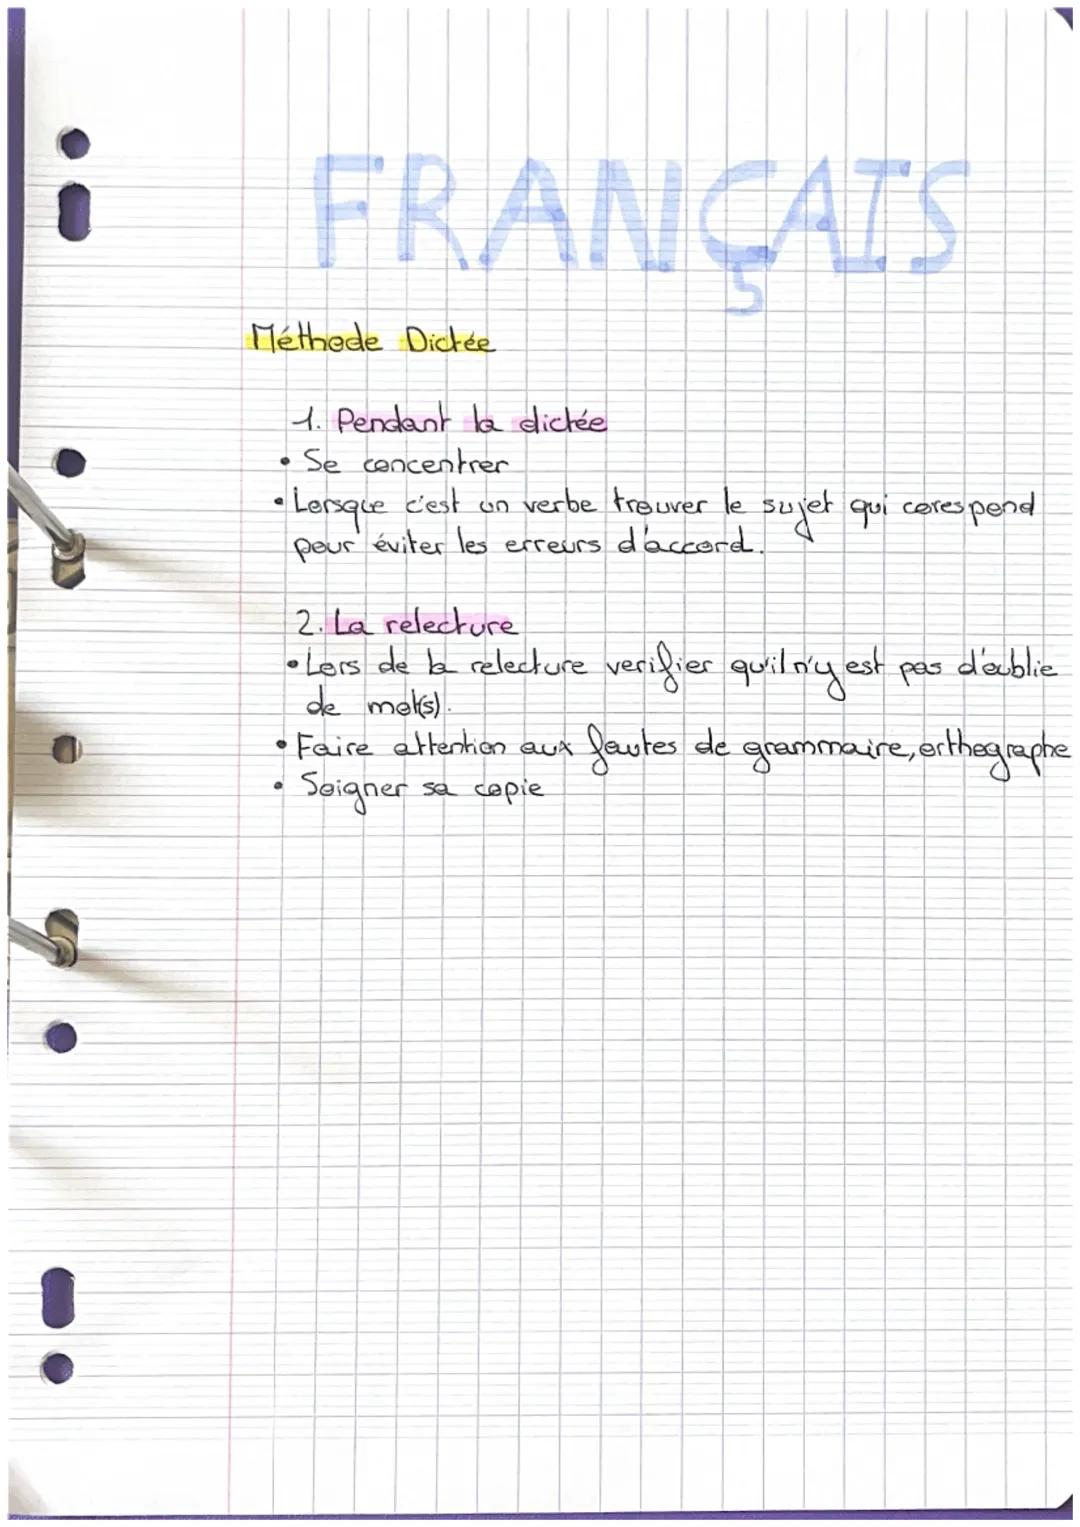 FRANÇAIS
Méthode Dictée
1. Pendant la dictée
• Se concentrer
• Lorsque c'est un verbe trouver le sujet qui corespond
pour éviter les erreurs d'accord.
2. La relecture
• Lors de la relecture verifier qu'il n'y est pas d'oublie
de mot(s).
• Faire attention aux fautes de grammaire, orthographe
• Soigner sa copie